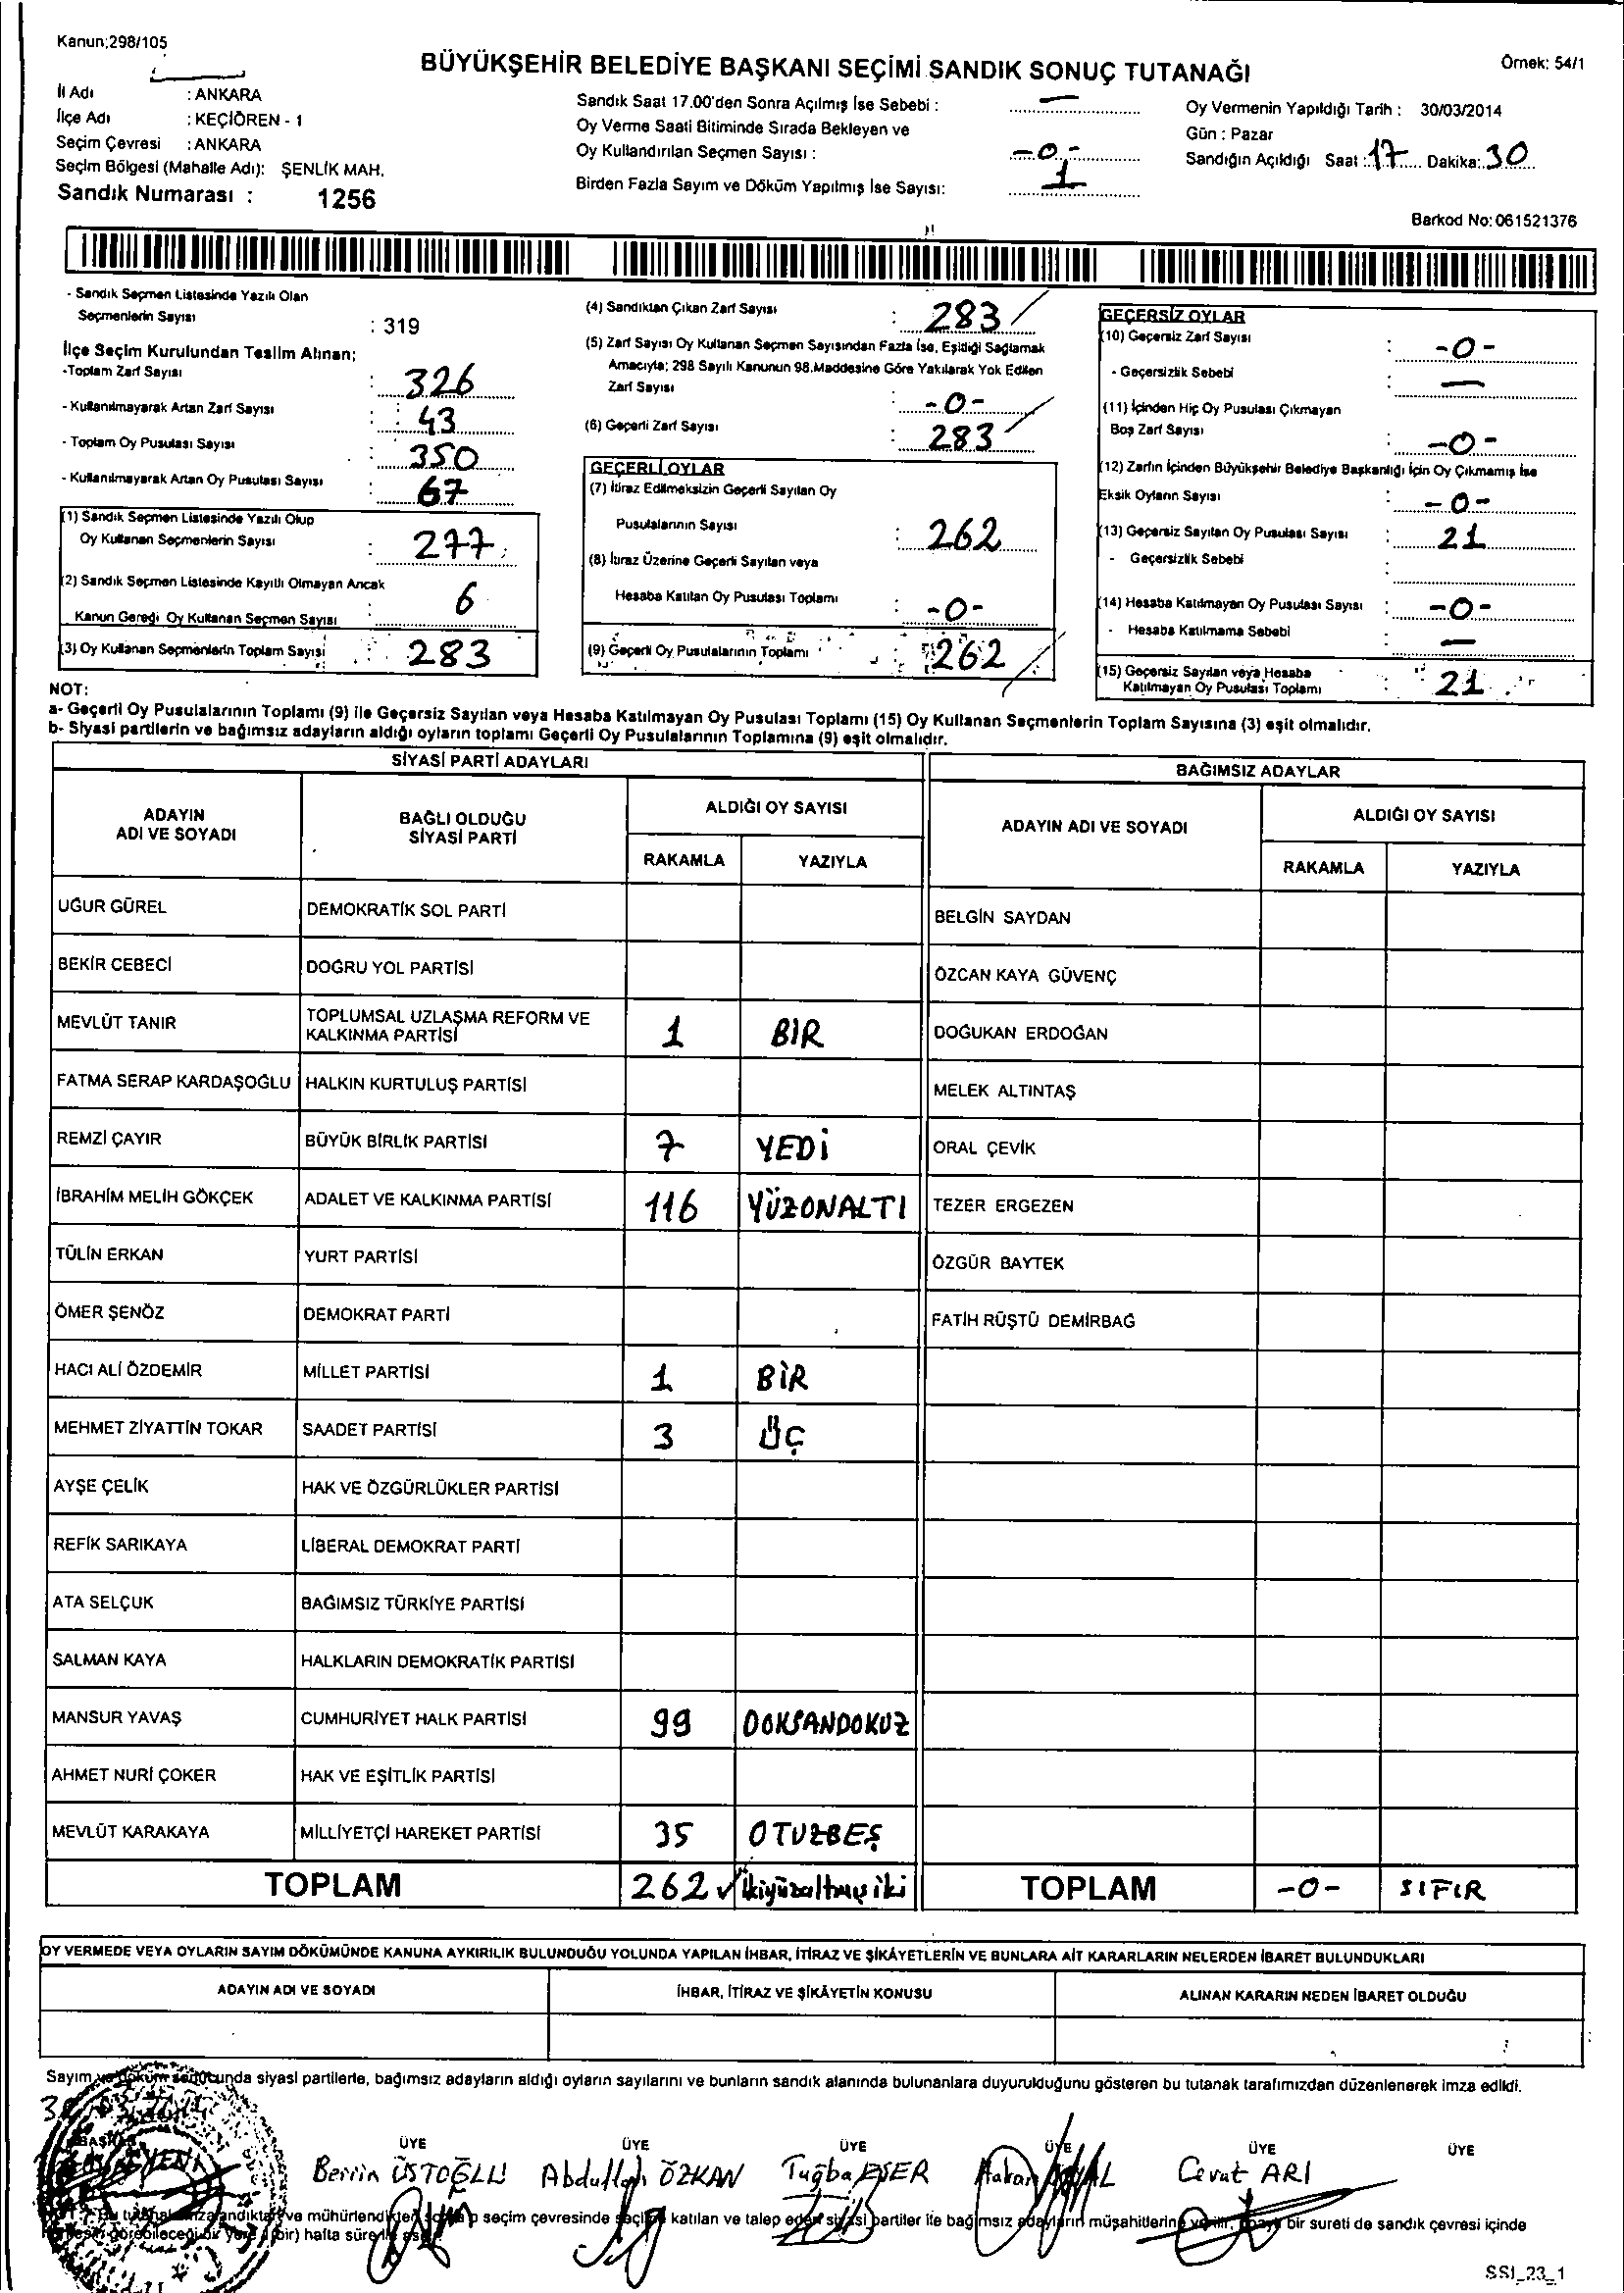 Kanun;298/105
BÜYÜKŞEHİR BELEDİYE BAŞKANI SEÇİMİ SANDIK SONUÇ TUTANAĞI
Örnek: 54/1
İl Adı : ANKARA
İlçe Adı : KEÇİÖREN - 1
Seçim Çevresi : ANKARA
Seçim Bölgesi (Mahalle Adı): ŞENLİK MAH.
Sandık Numarası : 1256
Sandık Saat 17.00'den Sonra Açılmış İse Sebebi : —
Oy Verme Saati Bitiminde Sırada Bekleyen ve
Oy Kullandırılan Seçmen Sayısı : -0-
Birden Fazla Sayım ve Döküm Yapılmış İse Sayısı: 1
Oy Vermenin Yapıldığı Tarih : 30/03/2014
Gün : Pazar
Sandığın Açıldığı Saat : 17 Dakika: 30
Barkod No: 061521376
- Sandık Seçmen Listesinde Yazılı Olan
Seçmenlerin Sayısı : 319
İlçe Seçim Kurulundan Teslim Alınan;
-Toplam Zarf Sayısı : 326
- Kullanılmayarak Artan Zarf Sayısı : 43
- Toplam Oy Pusulası Sayısı : 350
- Kullanılmayarak Artan Oy Pusulası Sayısı : 67
(1) Sandık Seçmen Listesinde Yazılı Olup
Oy Kullanan Seçmenlerin Sayısı : 277
(2) Sandık Seçmen Listesinde Kayıtlı Olmayan Ancak
Kanun Gereği Oy Kullanan Seçmen Sayısı : 6
(3) Oy Kullanan Seçmenlerin Toplam Sayısı : 283
(4) Sandıktan Çıkan Zarf Sayısı : 283
(5) Zarf Sayısı Oy Kullanan Seçmen Sayısından Fazla İse, Eşitliği Sağlamak
Amacıyla; 298 Sayılı Kanunun 98.Maddesine Göre Yakılarak Yok Edilen
Zarf Sayısı : -0-
(6) Geçerli Zarf Sayısı : 283
GEÇERLİ OYLAR
(7) İtiraz Edilmeksizin Geçerli Sayılan Oy
Pusulalarının Sayısı : 262
(8) İtiraz Üzerine Geçerli Sayılan veya
Hesaba Katılan Oy Pusulası Toplamı : -0-
(9) Geçerli Oy Pusulalarının Toplamı : 262
GEÇERSİZ OYLAR
(10) Geçersiz Zarf Sayısı : -0-
- Geçersizlik Sebebi : —
(11) İçinden Hiç Oy Pusulası Çıkmayan
Boş Zarf Sayısı : -0-
(12) Zarfın İçinden Büyükşehir Belediye Başkanlığı İçin Oy Çıkmamış İse
Eksik Oyların Sayısı : -0-
(13) Geçersiz Sayılan Oy Pusulası Sayısı : 21
- Geçersizlik Sebebi :
(14) Hesaba Katılmayan Oy Pusulası Sayısı : -0-
- Hesaba Katılmama Sebebi : —
(15) Geçersiz Sayılan veya Hesaba
Katılmayan Oy Pusulası Toplamı : 21
NOT:
a- Geçerli Oy Pusulalarının Toplamı (9) ile Geçersiz Sayılan veya Hesaba Katılmayan Oy Pusulası Toplamı (15) Oy Kullanan Seçmenlerin Toplam Sayısına (3) eşit olmalıdır.
b- Siyasi partilerin ve bağımsız adayların aldığı oyların toplamı Geçerli Oy Pusulalarının Toplamına (9) eşit olmalıdır.
SİYASİ PARTİ ADAYLARI
ADAYIN ADI VE SOYADI
BAĞLI OLDUĞU SİYASİ PARTİ
ALDIĞI OY SAYISI
RAKAMLA YAZIYLA
UĞUR GÜREL DEMOKRATİK SOL PARTİ
BEKİR CEBECİ DOĞRU YOL PARTİSİ
MEVLÜT TANIR TOPLUMSAL UZLAŞMA REFORM VE KALKINMA PARTİSİ 1 BİR
FATMA SERAP KARDAŞOĞLU HALKIN KURTULUŞ PARTİSİ
REMZİ ÇAYIR BÜYÜK BİRLİK PARTİSİ 7 YEDİ
İBRAHİM MELİH GÖKÇEK ADALET VE KALKINMA PARTİSİ 116 YÜZONALTI
TÜLİN ERKAN YURT PARTİSİ
ÖMER ŞENÖZ DEMOKRAT PARTİ
HACI ALİ ÖZDEMİR MİLLET PARTİSİ 1 BİR
MEHMET ZİYATTİN TOKAR SAADET PARTİSİ 3 ÜÇ
AYŞE ÇELİK HAK VE ÖZGÜRLÜKLER PARTİSİ
REFİK SARIKAYA LİBERAL DEMOKRAT PARTİ
ATA SELÇUK BAĞIMSIZ TÜRKİYE PARTİSİ
SALMAN KAYA HALKLARIN DEMOKRATİK PARTİSİ
MANSUR YAVAŞ CUMHURİYET HALK PARTİSİ 99 DOKSANDOKUZ
AHMET NURİ ÇOKER HAK VE EŞİTLİK PARTİSİ
MEVLÜT KARAKAYA MİLLİYETÇİ HAREKET PARTİSİ 35 OTUZBEŞ
TOPLAM 262 ikiyüzaltmışiki
BAĞIMSIZ ADAYLAR
ADAYIN ADI VE SOYADI
ALDIĞI OY SAYISI
RAKAMLA YAZIYLA
BELGİN SAYDAN
ÖZCAN KAYA GÜVENÇ
DOĞUKAN ERDOĞAN
MELEK ALTINTAŞ
ORAL ÇEVİK
TEZER ERGEZEN
ÖZGÜR BAYTEK
FATİH RÜŞTÜ DEMİRBAĞ
TOPLAM -0- SIFIR
OY VERMEDE VEYA OYLARIN SAYIM DÖKÜMÜNDE KANUNA AYKIRILIK BULUNDUĞU YOLUNDA YAPILAN İHBAR, İTİRAZ VE ŞİKÂYETLERİN VE BUNLARA AİT KARARLARIN NELERDEN İBARET BULUNDUKLARI
ADAYIN ADI VE SOYADI
İHBAR, İTİRAZ VE ŞİKÂYETİN KONUSU
ALINAN KARARIN NEDEN İBARET OLDUĞU
Sayım ve döküm sonucunda siyasi partilerle, bağımsız adayların aldığı oyların sayılarını ve bunların sandık alanında bulunanlara duyurulduğunu gösteren bu tutanak tarafımızdan düzenlenerek imza edildi.
BAŞKAN ÜYE ÜYE ÜYE ÜYE ÜYE ÜYE
Berrin ÜSTOĞLU Abdullah ÖZKAN Tuğba ESER Hakan Cevat ARI
seçim çevresinde katılan ve talep eden siyasi partiler ile bağımsız adayların müşahitlerine bir sureti de sandık çevresi içinde
hafta süreyle
SSI_23_1